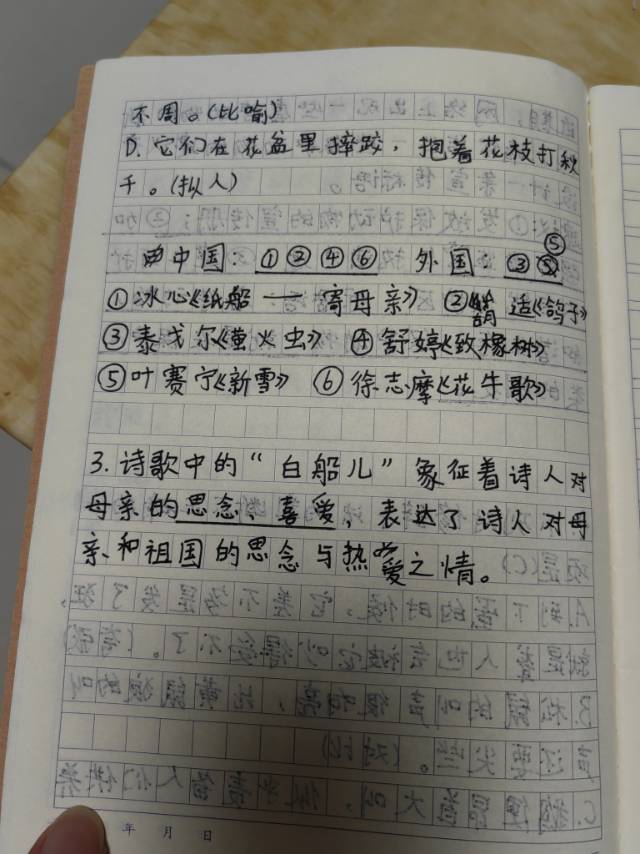 不周。(比喻)
D. 它们在花盆里摔跤，抱着花枝打秋
千。(拟人)
中国：①②④⑥ 外国：③⑤
①冰心《纸船——寄母亲》 ②胡适《鸽子》
③泰戈尔《萤火虫》 ④舒婷《致橡树》
⑤叶赛宁《新雪》 ⑥徐志摩《花牛歌》
3. 诗歌中的“白船儿”象征着诗人对
母亲的思念、喜爱，表达了诗人对母
亲和祖国的思念与热爱之情。
年 月 日